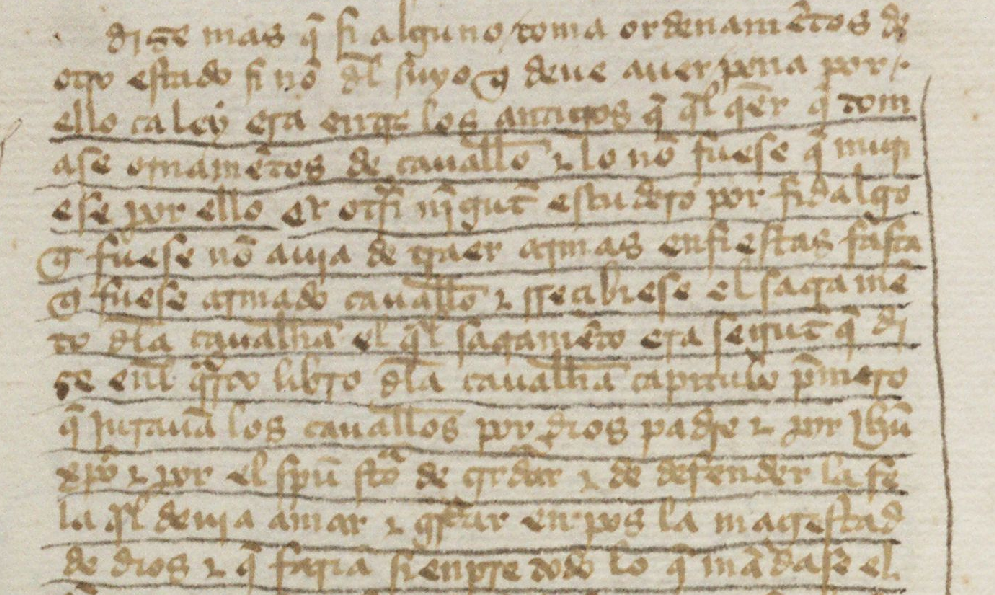 dize mas q̃ si alguno toma ordenamẽtos de
otro estado si nõ dl̃ suyo q̃ deve aver pena por
ello ca ley era entre los antigos q̃ q̃l q̃er q̃ tom
ase ornamẽtos de cavallõ ⁊ lo nõ fuese q̃ muri
ese por ello et otrsi nĩgut̃ escudero por fidalgo
q̃ fuese nõ avia de traer armas enfiestas fasta
q̃ fuese armado cavallõ ⁊ rrecibiese el sacramẽ
to dl̃a cavallr̃ia el q̃l sacramẽto era segunt̃ q̃ di
ze enl̃ q̃rto libro dl̃a cavallr̃ia capitulo p̃mero
q̃ juravã los cavallõs por dios padre ⁊ por ihũ
xp̃o ⁊ por el sp̃u sto̱ de grdar ⁊ de defender la fe
la q̃l devia amar ⁊ grdar enpos la magestad
de dios ⁊ q̃ fariã sienpre todo lo q̃ mãdase el